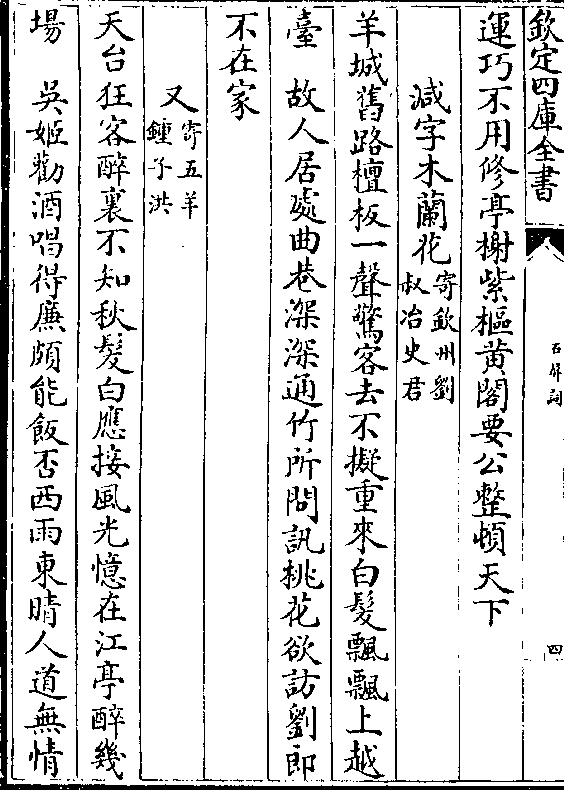 欽定四庫全書
石屏詞
四
運巧不用修亭榭紫樞黃閣要公整頓天下
減字木蘭花寄欽州劉
叔冶史君
羊城舊路檀板一聲驚客去不擬重來白髮飄飄上越
臺　故人居處曲巷深深通竹所問訊桃花欲訪劉郎
不在家
又寄五羊
鍾子洪
天台狂客醉裏不知秋髮白應接風光憶在江亭醉幾
場　吳姬勸酒唱得廉頗能飯否西雨東晴人道無情